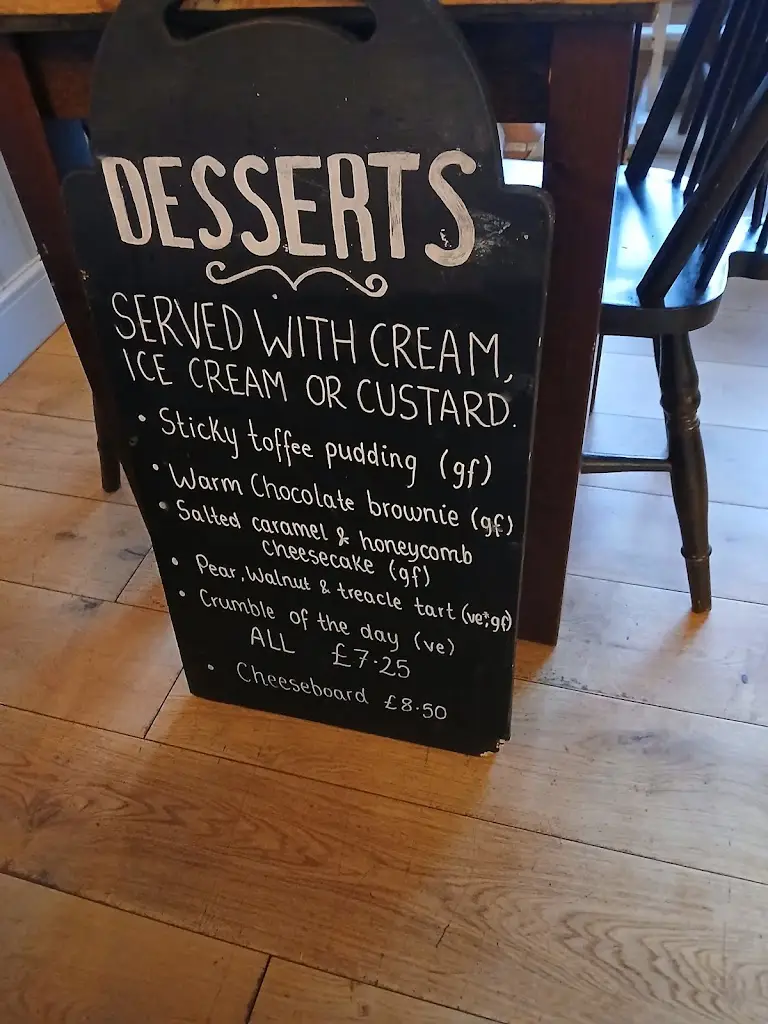 DESSERTS
SERVED WITH CREAM,
ICE CREAM OR CUSTARD.
• Sticky toffee pudding (gf)
• Warm Chocolate brownie (gf)
• Salted caramel & honeycomb
cheesecake (gf)
• Pear, Walnut & treacle tart (ve*,gf)
• Crumble of the day (ve)
ALL £7.25
• Cheeseboard £8.50